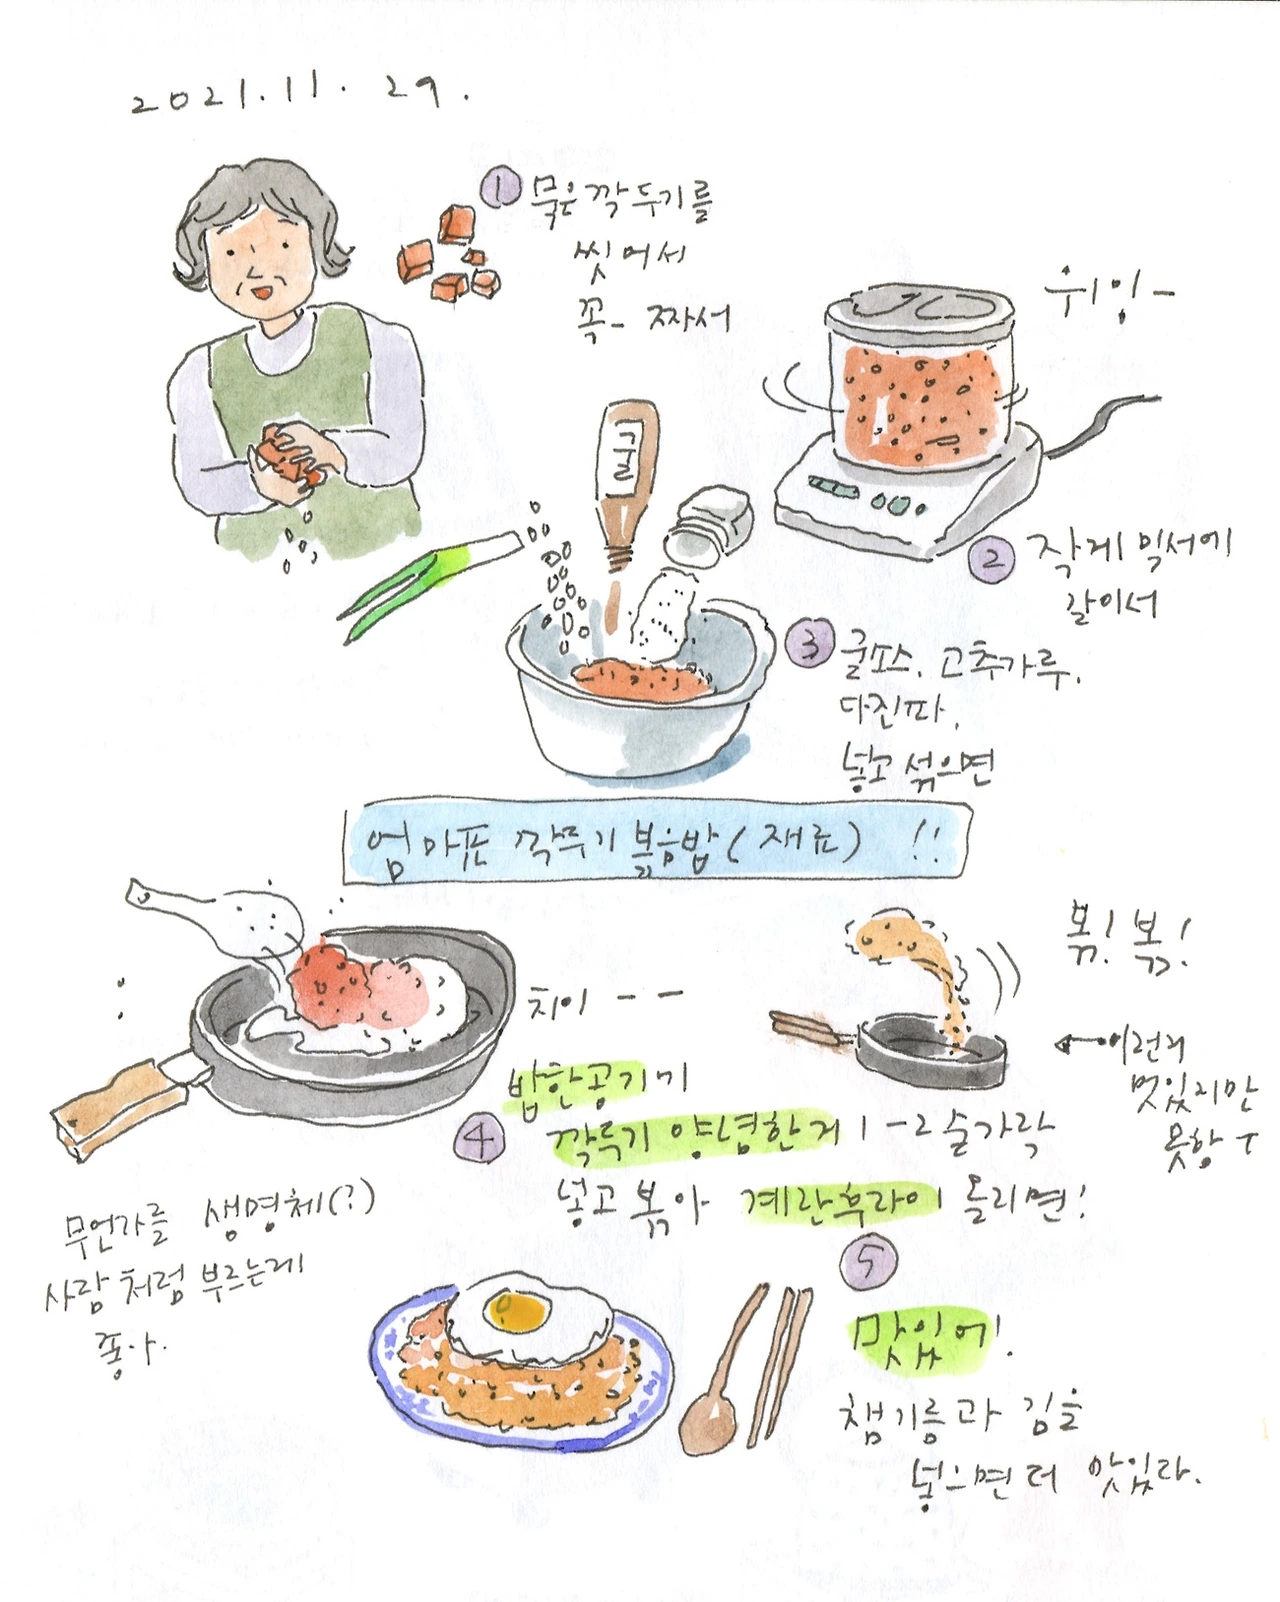 2021.11.29.
① 묵은 깍두기를
씻어서
꼭- 짜서
위잉-
② 작게 믹서에
갈아서
굴
③ 굴소스, 고추가루,
다진파,
넣고 섞으면
엄마표 깍뚜기 볶음밥(재료) !!
치이--
볶! 볶!
←이런거
멋있지만
못함 ㅜ
밥한공기기
④ 깍뚜기 양념한거 1-2 숟가락
넣고 볶아 계란후라이 올리면!
무언가를 생명체(?)
사람처럼 부르는게
좋아.
⑤
맛있어!
챔기름과 김을
넣으면 더 맛있다.